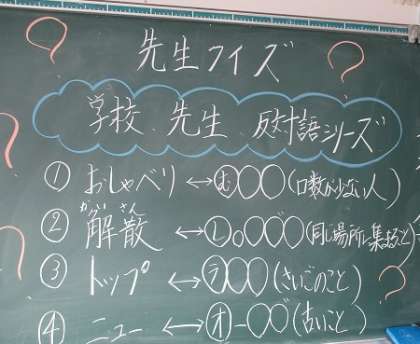 先生クイズ
学校、先生 反対語シリーズ
① おしゃべり ↔ む○○(口数が少ない人)
② 解散 ↔ し○○○゛○(同じ場所に集まること)
かいさん
③ トップ ↔ ラ○○(さいごのこと)
④ ニュー ↔ オー○○゛(古いこと)